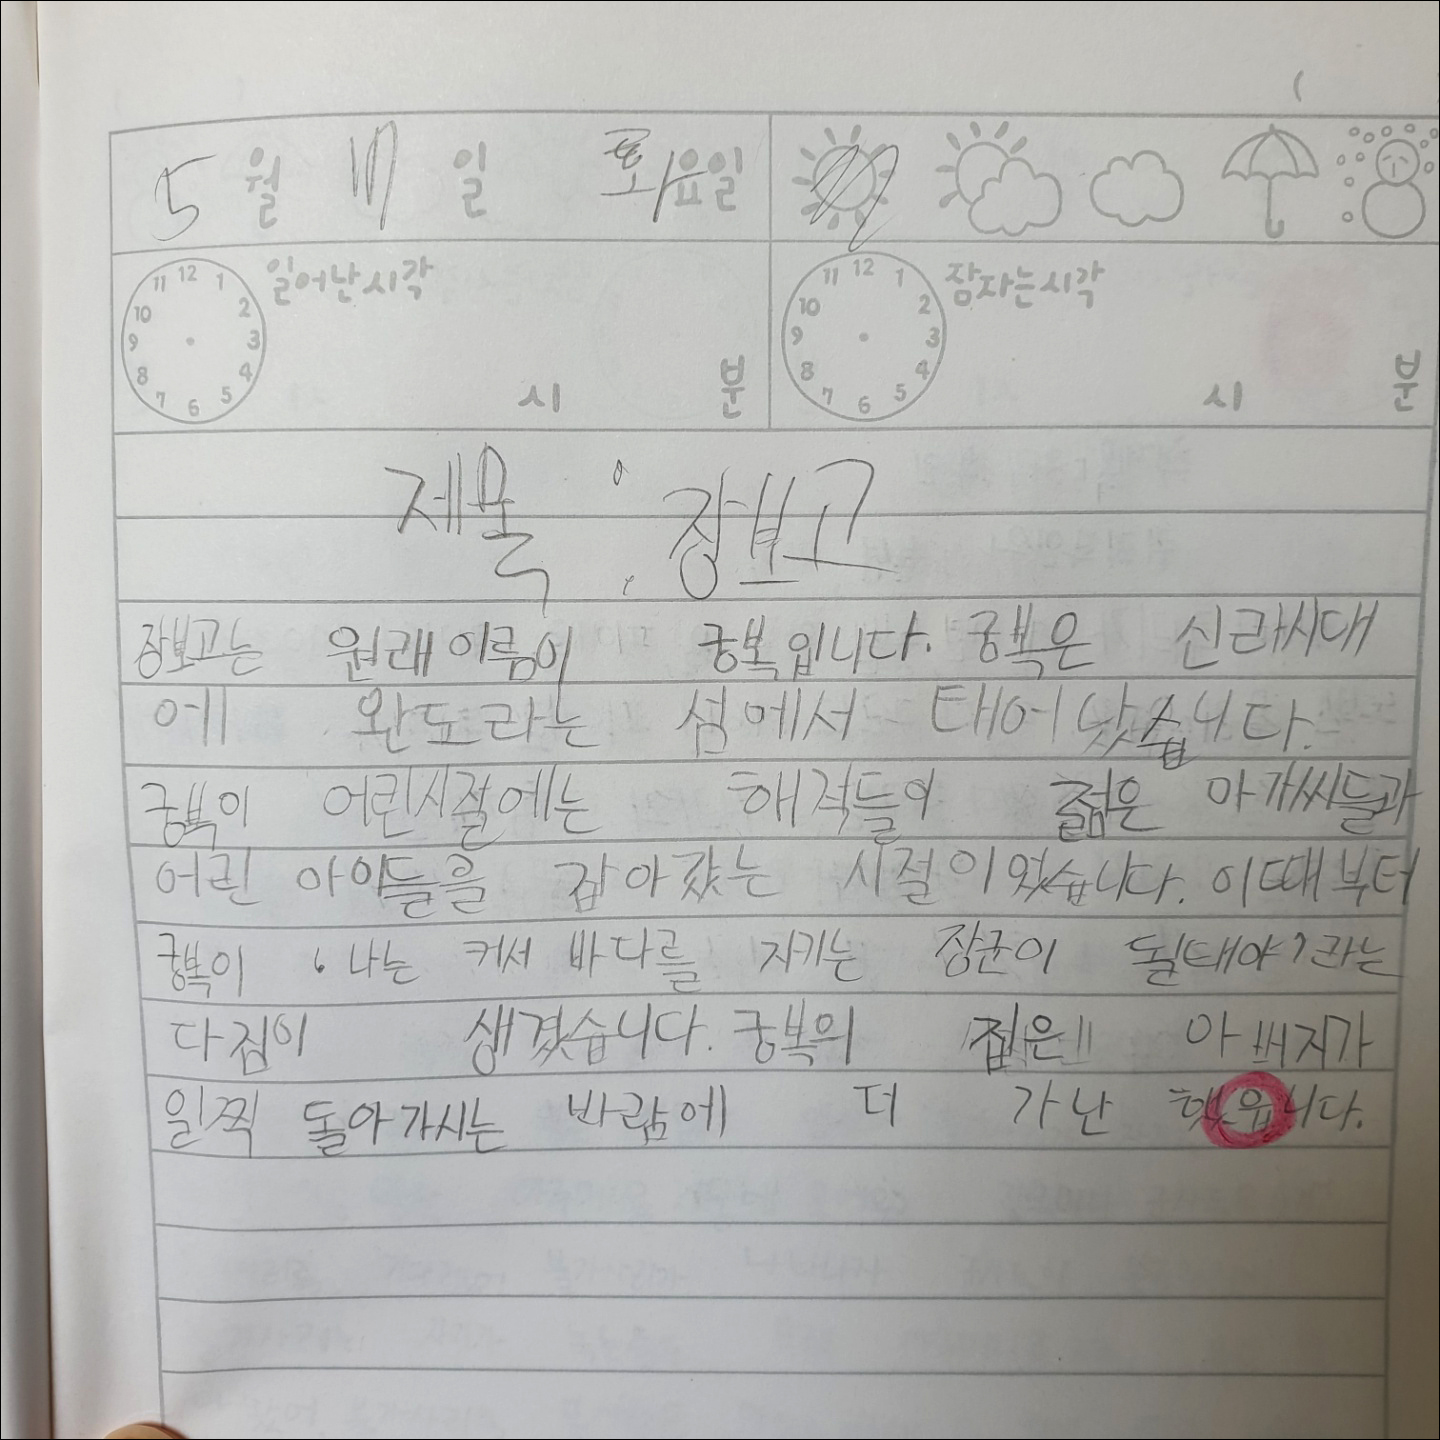 5 월 17 일 화요일
11 12 1 10 2 9 3 8 4 7 6 5 일어난시각 시 분
11 12 1 10 2 9 3 8 4 7 6 5 잠자는시각 시 분
제목 : 장보고
장보고는 원래이름이 궁복입니다. 궁복은 신라시대
에 완도라는 섬에서 태어났습니다.
궁복이 어린시절에는 해적들이 젊은 아가씨들과
어린 아이들을 잡아갔는 시절이였습니다. 이때부터
궁복이 '나는 커서 바다를 지키는 장군이 될태야'라는
다짐이 생겼습니다. 궁복의 젊은 아버지가
일찍 돌아가시는 바람에 더 가난 했읍니다.